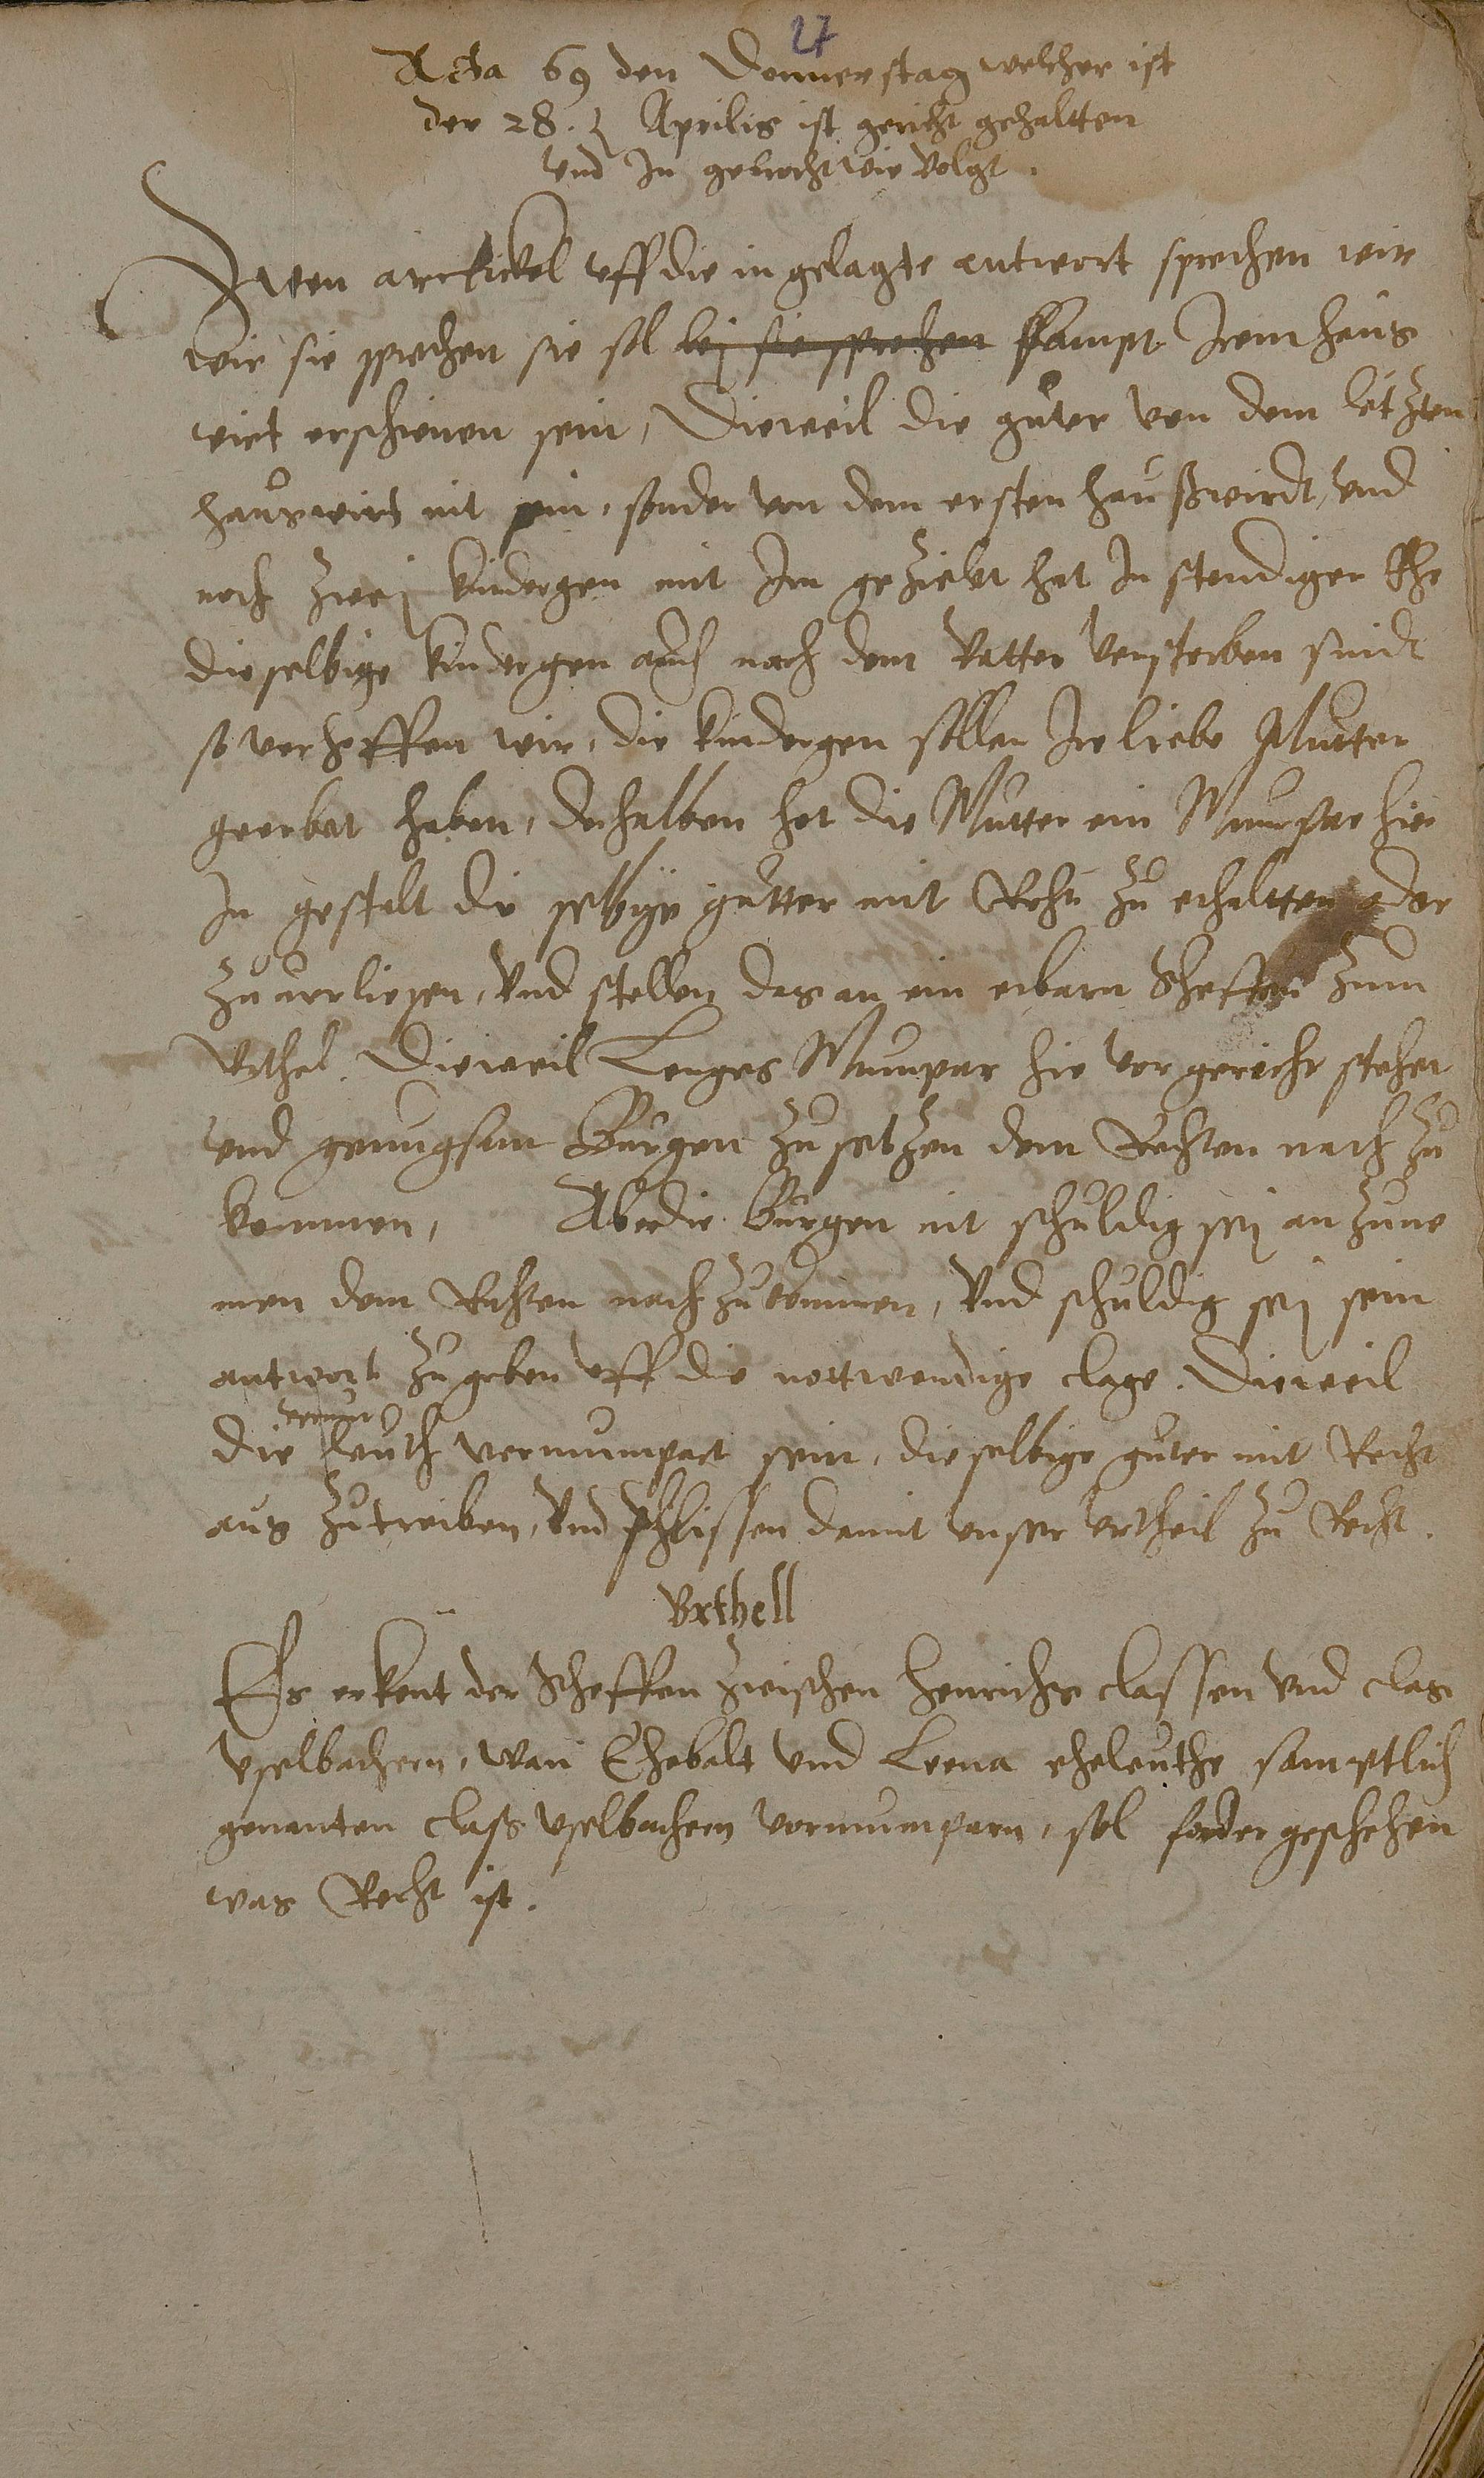 27
Acta 69 den Donnerstag welcher ist
der 28. Aprilis ist gericht gehaltten
und In gebrocht wie volgt.
arttickel uff die in gelagte antwort sprechen wir
wie sie sprechen sie sol bej sie sprechen sampt Irem haus
wirt erschienen sein, Dieweil die guter von dem letzten
hauswirt nit sein, sonder von dem ersten haußwirdt, und
noch zwej kindergen mit Im gezielet hat In stendiger Ehe
dieselbige kindergen auch nach dem Vatter verstorben sindt
so verhoffen wir, die kindergen sollen Ire liebe Mutter
geerbet haben, deshalben hat die Mutter ein Mumpar hie
In gestalt die selbige gutter mit Recht zu erhaltten oder
zu verliesen, Und stellen das an ein erbarn Scheffen zum
Urthel. Dieweil Lenges Mumpar hie vor gericht stehet
und genugsam Burgen zu setzen dem Rechten nach zu
kommen, Aber die Burgen nit schuldig sej an zune
men dem Rechten nach zukommen, Und schuldig sej sein
antwort zu geben uff die nottwendige clage. Dieweil
die leuth vermumpart sein, dieselbige guter mit Recht
aus zutreiben, Und schlissen damit unser urtheil zu Recht.
Urthell
Es erkent der Scheffen zwischen Henrichs classen und clas
Uselbachern, wan Thebalt und Leena eheleuthe samptlich
genanten class Uselbachern vermumparn, sol forder geschehen
was Recht ist.